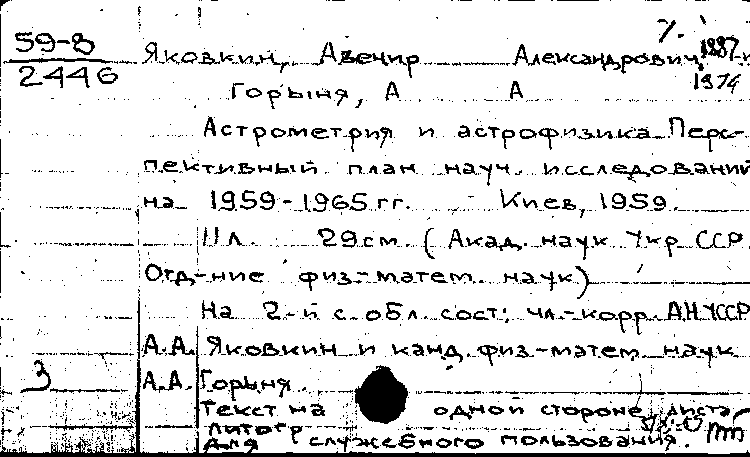 59-8
2446
Яковкин, Авенир Александрович, 1887-
1974
Горыня, А А
Астрометрия и астрофизика. Перс-
пективный план науч. исследований
на 1959-1965 гг. Киев, 1959.
11 л. 29 см. (Акад. наук Укр ССР.
Отд-ние физ-матем. наук)
На 2-й с. обл. сост: чл.-корр. АН УССР
А.А. Яковкин и канд. физ-матем. наук
3 А.А. Горыня.
Текст на одной стороне листа
Литогр
Для служебного пользования.